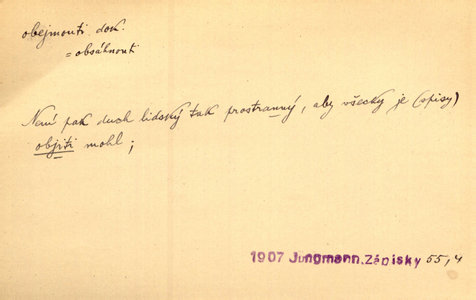 obejmouti dok.
= obsáhnouti
Není pak duch lidský tak prostranný, aby všecky je (spisy)
objíti mohl;
1907 Jungmann, Zápisky 55,4